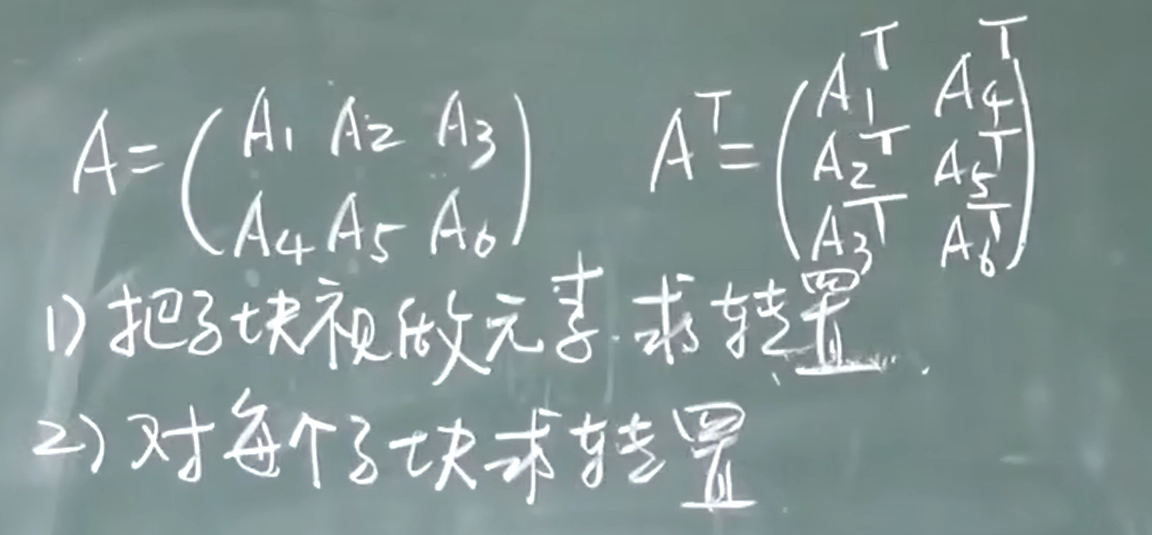 A=(A1 A2 A3
A4 A5 A6) A^T=(A1^T A4^T
A2^T A5^T
A3^T A6^T)
1) 把子块视做元素.求转置.
2) 对每个子块求转置